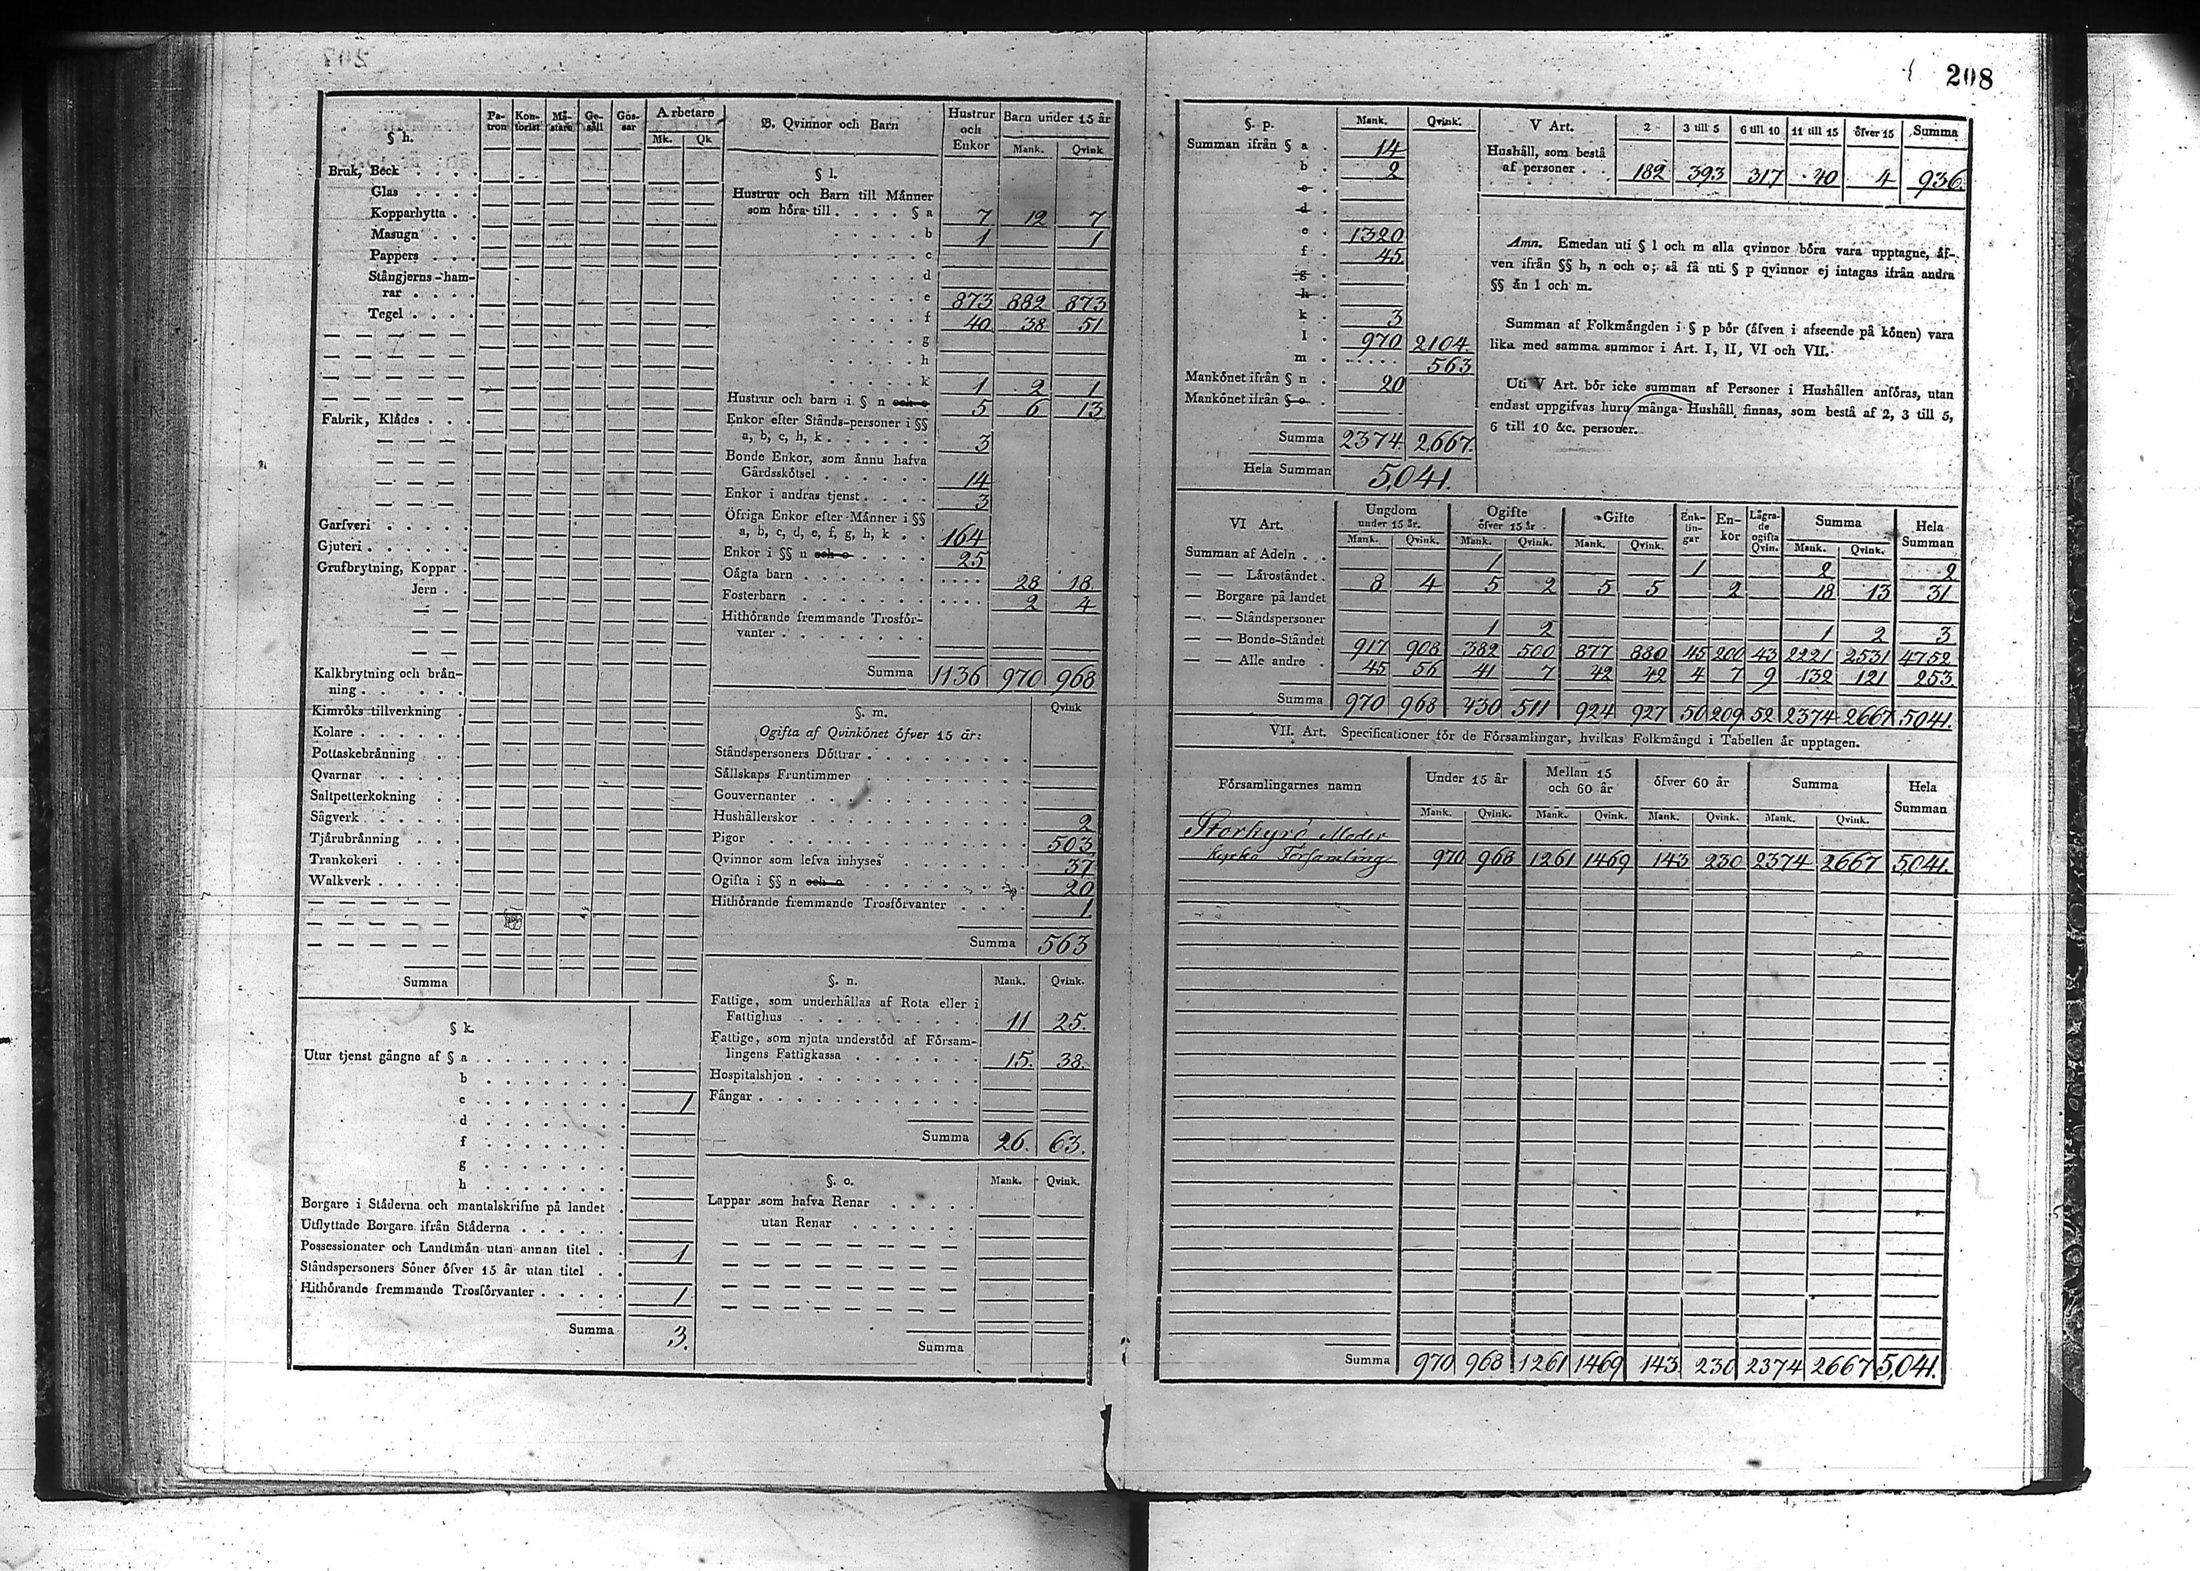 208
§ h.
Pa-tron Kon-torist Mä-stare Ge-säll Gos-sar Arbetare
Mk. Qk
Bruk, Beck . . . .
Glas . . . .
Kopparhytta . .
Masugn . . .
Pappers . . .
Stångjerns-ham-
rar . . . .
Tegel . . . .
Fabrik, Klådes . . .
Garfveri . . . . .
Gjuteri . . . . . .
Grufbrytning, Koppar .
Jern . .
Kalkbrytning och brån-
ning . . . . . .
Kimröks tillverkning .
Kolare . . . . . .
Pottaskebränning . .
Qvarnar . . . . .
Saltpetterkokning . .
Sågverk . . . . .
Tjärubränning . . .
Trankokeri . . . .
Walkverk . . . . .
Summa
§ k.
Utur tjenst gångne af § a . . . . . . .
b . . . . . . .
c . . . . . . . 1
d . . . . . . .
f . . . . . . .
g . . . . . . .
h . . . . . . .
Borgare i Städerna och mantalskrifne på landet .
Utflyttade Borgare ifrån Städerna . . . . .
Possessionater och Landtmän utan annan titel . . 1
Ståndspersoners Söner öfver 15 år utan titel . .
Hithörande fremmande Trosförvanter . . . . . 1
Summa 3.
B. Qvinnor och Barn
Hustrur och Enkor Barn under 15 år
Mank. Qvink
§ l.
Hustrur och Barn till Männer
som höra till . . . . § a 7 12 7
b 1 1
c
d
e 873 882 873
f 40 38 51
g
h
k 1 2 1
Hustrur och barn i § n och o 5 6 13
Enkor efter Stånds-personer i §§
a, b, c, h, k . . . . . . 3
Bonde Enkor, som ännu hafva
Gårdsskötsel . . . . . . 14
Enkor i andras tjenst . . . . 3
Öfriga Enkor efter Männer i §§
a, b, c, d, e, f, g, h, k . . 164
Enkor i §§ n och o . . . . . 25
Oägta barn . . . . . . . 28 18
Fosterbarn . . . . . . . 2 4
Hithörande fremmande Trosför-
vanter . . . . . . . .
Summa 1136 970 968
§. m.
Qvink
Ogifta af Qvinkönet öfver 15 år:
Ståndspersoners Döttrar . . . . . . . .
Sällskaps Fruntimmer . . . . . . . .
Gouvernanter . . . . . . . . . .
Hushållerskor . . . . . . . . . . 2
Pigor . . . . . . . . . . . . 503
Qvinnor som lefva inhyses . . . . . . 37
Ogifta i §§ n och o . . . . . . . . 20
Hithörande fremmande Trosförvanter . . . . 1
Summa 563
§. n.
Mank. Qvink.
Fattige, som underhållas af Rota eller i
Fattighus . . . . . . . . . 11 25.
Fattige, som njuta understöd af Försam-
lingens Fattigkassa . . . . . . 15. 38.
Hospitalshjon . . . . . . . . .
Fångar . . . . . . . . . . .
Summa 26. 63.
§. o.
Mank. Qvink.
Lappar som hafva Renar . . . .
utan Renar . . . . .
Summa
§. p.
Mank. Qvink.
Summan ifrån § a . 14
b . 2
c .
d .
e . 1320
f . 45.
g .
h .
k . 3
l . 970 2104.
m . 563
Mankönet ifrån § n . 20
Mankönet ifrån § o .
Summa 2374. 2,667.
Hela Summan 5,041.
V Art. 2 3 till 5 6 till 10 11 till 15 öfver 15 Summa
Hushåll, som bestå
af personer . . 182 393 317 40 4 936.
Anm. Emedan uti § l och m alla qvinnor böra vara upptagne, äf-
ven ifrån §§ h, n och o; så få uti § p qvinnor ej intagas ifrån andra
§§ än l och m.
Summan af Folkmängden i § p bör (äfven i afseende på könen) vara
lika med samma summor i Art. I, II, VI och VII.
Uti V Art. bör icke summan af Personer i Hushållen anföras, utan
endast uppgifvas huru många Hushåll finnas, som bestå af 2, 3 till 5,
6 till 10 &c. personer.
VI Art.
Ungdom under 15 år. Ogifte öfver 15 år Gifte Enk-lin-gar En-kor Lägra-de ogifta Qvin. Summa Hela Summan
Mank. Qvink. Mank. Qvink. Mank. Qvink. Mank. Qvink.
Summan af Adeln . . 1 1 2 2
— — Läroståndet . 8 4 5 2 5 5 2 18 13 31
— — Borgare på landet
— — Ståndspersoner 1 2 1 2 3
— — Bonde-Ståndet 917 908 382 500 877 880 45 200 43 2221 2531 4752
— — Alle andre . 45 56 41 7 42 42 4 7 9 132 121 253.
Summa 970 968 430 511 924 927 50 209 52 2374 2667 5041.
VII. Art. Specificationer för de Församlingar, hvilkas Folkmängd i Tabellen är upptagen.
Församlingarnes namn
Under 15 år Mellan 15 och 60 år öfver 60 år Summa Hela Summan
Mank. Qvink. Mank. Qvink. Mank. Qvink. Mank. Qvink.
Storkyrö Moder
kyrko Församling 970 968 1261 1469 143 230 2374 2667 5,041.
Summa 970 968 1261 1469 143 230 2374 2667 5,041.